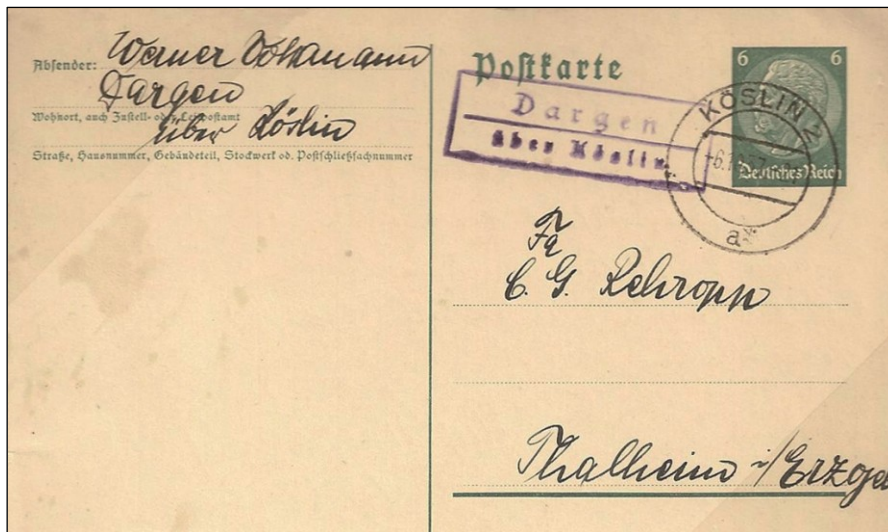 Absender: Werner
Dargen
Wohnort, auch Zustell- oder Leitpostamt
über Köslin
Straße, Hausnummer, Gebäudeteil, Stockwerk od. Postschließfachnummer
Postkarte
Dargen
über Köslin
6 6
Deutsches Reich
KÖSLIN 2
a
Fa
C. G. Rehropp
Thalheim i/Erzge